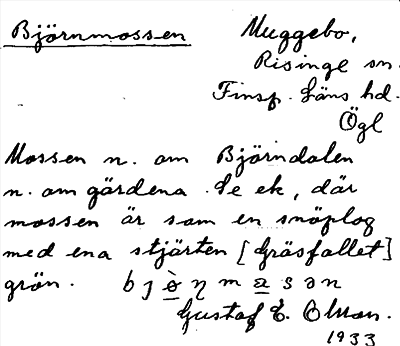 Björnmossen
Muggebo,
Risinge sn.
Finsp. läns hd.
Ögl
Mossen n. om Björndalen
n. om gärdena. Se ek, där
mossen är som en snöplog
med ena stjärten [Gräsfallet]
grön. bjö̀ηmasən
Gustaf E. Olsson.
1933